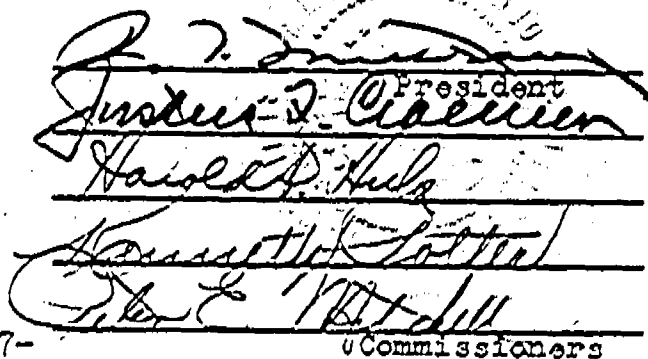 President
Justus F. Craemer
Harold P. Huls
Kenneth Potter
Peter E. Mitchell
7-
Commissioners